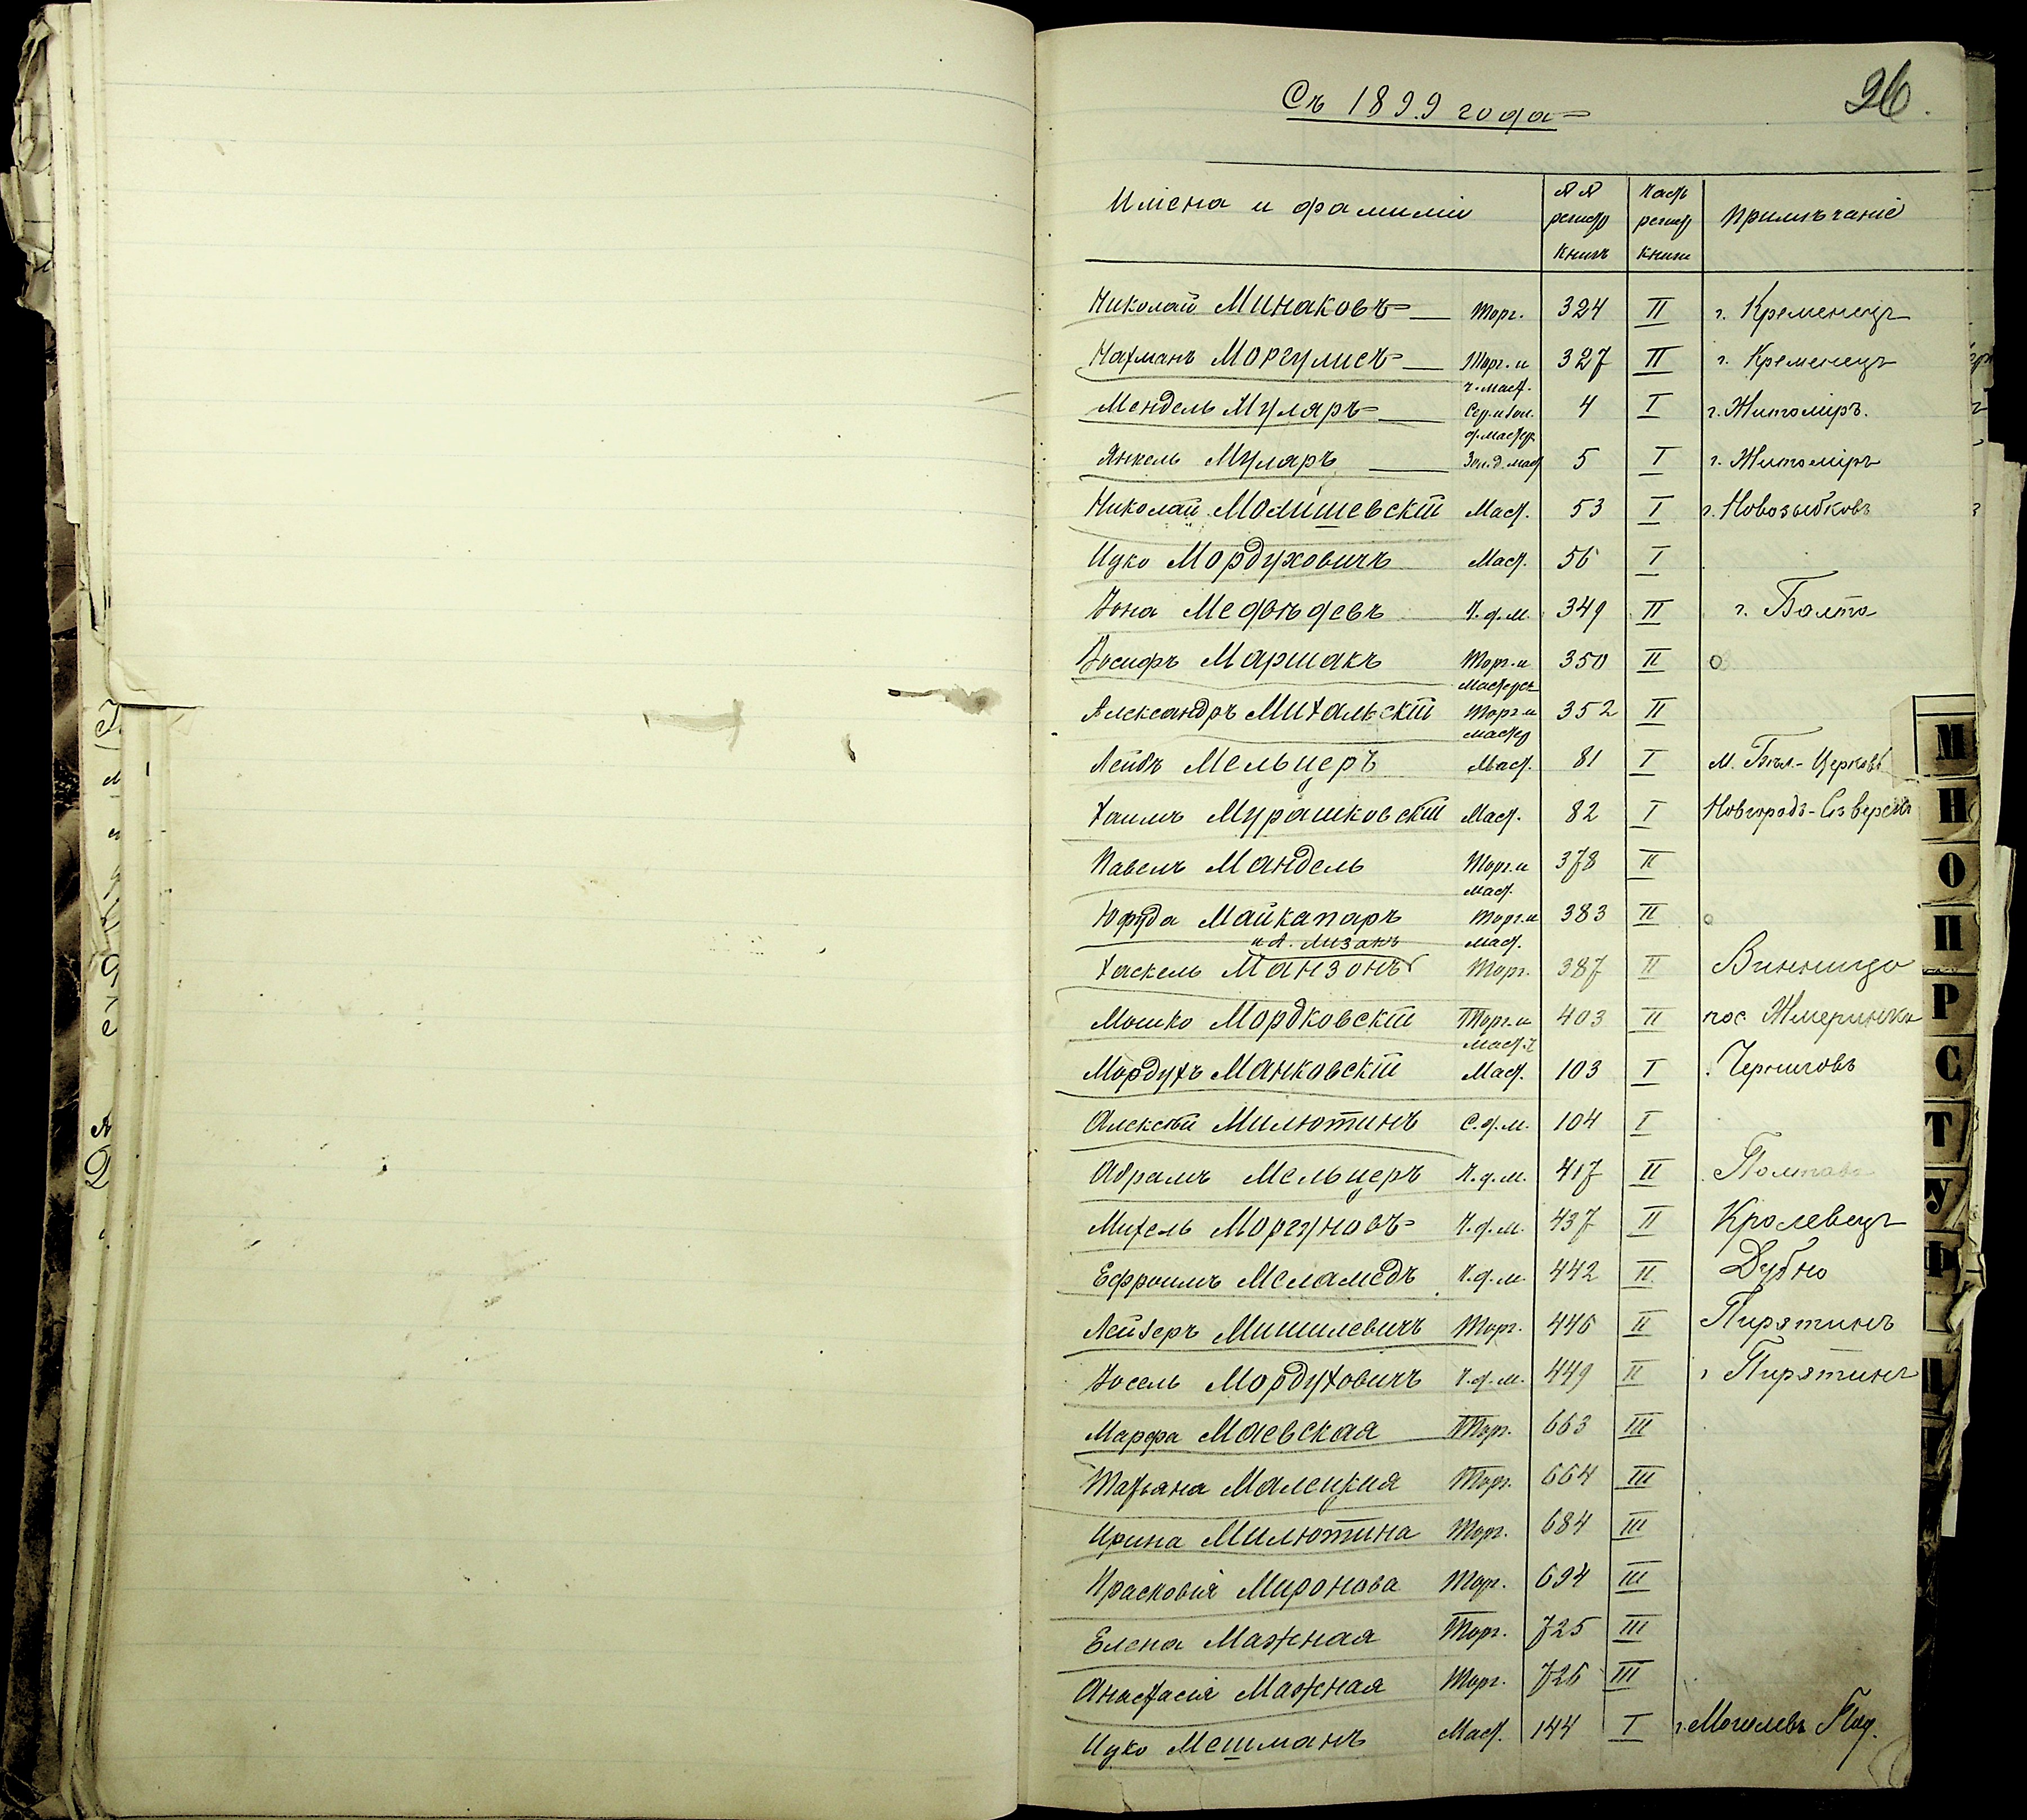 Съ 1899 года
26.
Имена и фамилiи
№№ регистр книгъ
Част регистр книги
Примѣчанiе
Николай Минаковъ Торг. 324 II г. Кременецъ
Нахманъ Моргулисъ Торг. и ч. маст. 327 II г. Кременецъ
Мендель Муляръ Сер. и зол. д. мастер 4 I г. Житомiръ.
Янкель Муляръ Зол. д. маст 5 I г. Житомiръ
Николай Молишевскiй Маст. 53 I г. Новозыбковъ
Ицко Мордуховичъ Маст. 56 I
Iона Мефодьевъ Ч. д. м. 349 II г. Балта
Iосифъ Маршакъ Торг. и Мастерск 350 II
Александръ Михальскiй Торг и мастер 352 II
Лейбъ Мельцеръ Маст. 81 I м. Бѣл.-Церковь
Хаимъ Мурашковскiй Маст. 82 I Новгородъ-Сѣверскъ
Павелъ Мандель Торг. и маст. 378 II
Юфуда Майкапаръ Торг. и маст. 383 II
и А. Лизанъ
Хаскель Манзонъ Торг. 387 II Винница
Мошко Мордковскiй Торг. и Маст. ч 403 II пос Жмеринка
Мордухъ Манковскiй Маст. 103 I Черниговъ
Алексѣй Милютинъ С. д. м. 104 I
Абрамъ Мельцеръ Ч. д. м. 417 II Полтава
Михель Моргуновъ Ч. д. м. 437 II Кролевецъ
Ефроимъ Меламедъ Ч. д. м. 442 II Дубно
Лейзеръ Мишилевичъ Торг. 446 II Пирятинъ
Iосель Мордуховичъ Ч. д. м. 449 II г Пирятинъ
Марфа Маевская Торг. 663 III
Татьяна Малецкая Торг. 664 III
Ирина Милютина Торг. 684 III
Прасковiя Миронова Торг. 694 III
Елена Мажная Торг. 725 III
Анастасiя Мажная Торг. 726 III
Ицко Мешманъ Маст. 144 I г. Могилевъ Под.
М
Н
О
П
Р
С
Т
У
Ф